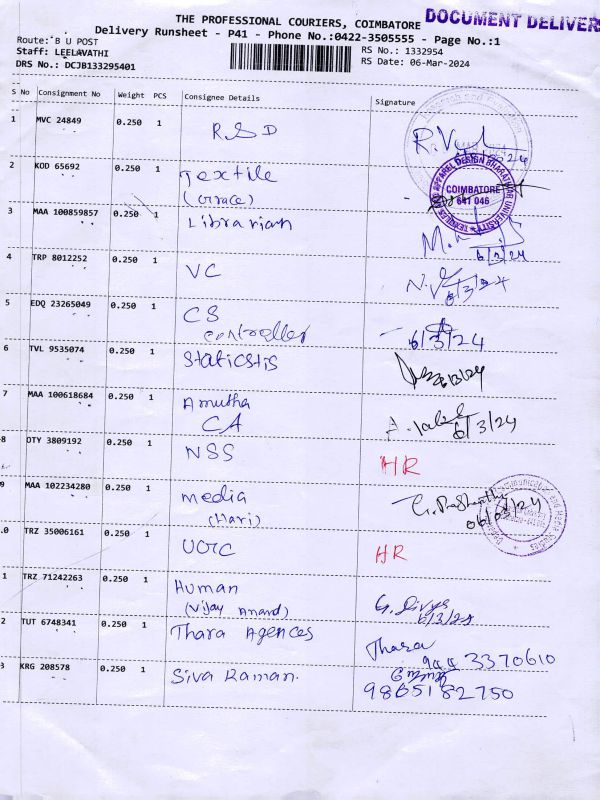 THE PROFESSIONAL COURIERS, COIMBATORE
DOCUMENT DELIVER
Delivery Runsheet - P41 - Phone No.:0422-3505555 - Page No.:1
Route:B U POST
Staff: LEELAVATHI
DRS No.: DCJB133295401
RS No.: 1332954
RS Date: 06-Mar-2024
S No Consignment No Weight PCS Consignee Details Signature
1 MVC 24849 0.250 1 RSD
2 KOD 65692 0.250 1 Textile
(Grace)
COIMBATORE
641 046
3 MAA 100859857 0.250 1 Librarian
6/3/24
4 TRP 8012252 0.250 1 VC
6/3/24
5 EDQ 23265049 0.250 1 CS
controller
6/3/24
6 TVL 9535074 0.250 1 Staticstis
6/3/24
7 MAA 100618684 0.250 1 Amutha
CA
6/3/24
8 OTY 3809192 0.250 1 NSS HR
9 MAA 102234280 0.250 1 media
(Hari)
06/03/24
.0 TRZ 35006161 0.250 1 HR
1 TRZ 71242263 0.250 1 Human
(Vijay Anand)
6/3/24
2 TUT 6748341 0.250 1 Thara Agences Thara
3370610
3 KRG 208578 0.250 1 Siva Raman.
9865182750